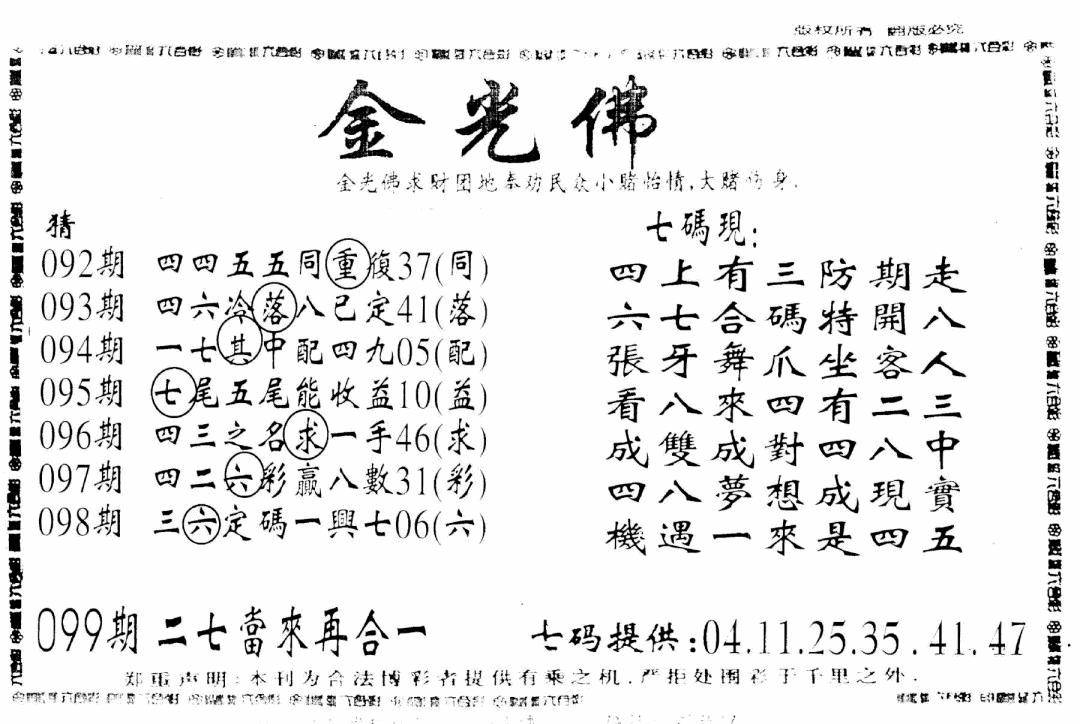 版权所有 翻版必究
金光佛
金光佛求财团地奉劝民众小赌怡情,大赌伤身.
猜
092期 四四五五同重復37(同)
093期 四六冷落八已定41(落)
094期 一七其中配四九05(配)
095期 七尾五尾能收益10(益)
096期 四三之名求一手46(求)
097期 四二六彩贏八數31(彩)
098期 三六定碼一興七06(六)
七碼現:
四上有三防期走
六七合碼特開八
張牙舞爪坐客人
看八來四有二三
成雙成對四八中
四八夢想成現實
機遇一來是四五
099期 二七當來再合一
七码提供:04.11.25.35.41.47
郑重声明:本刊为合法博彩者提供有乘之机.严拒处围彩于千里之外.